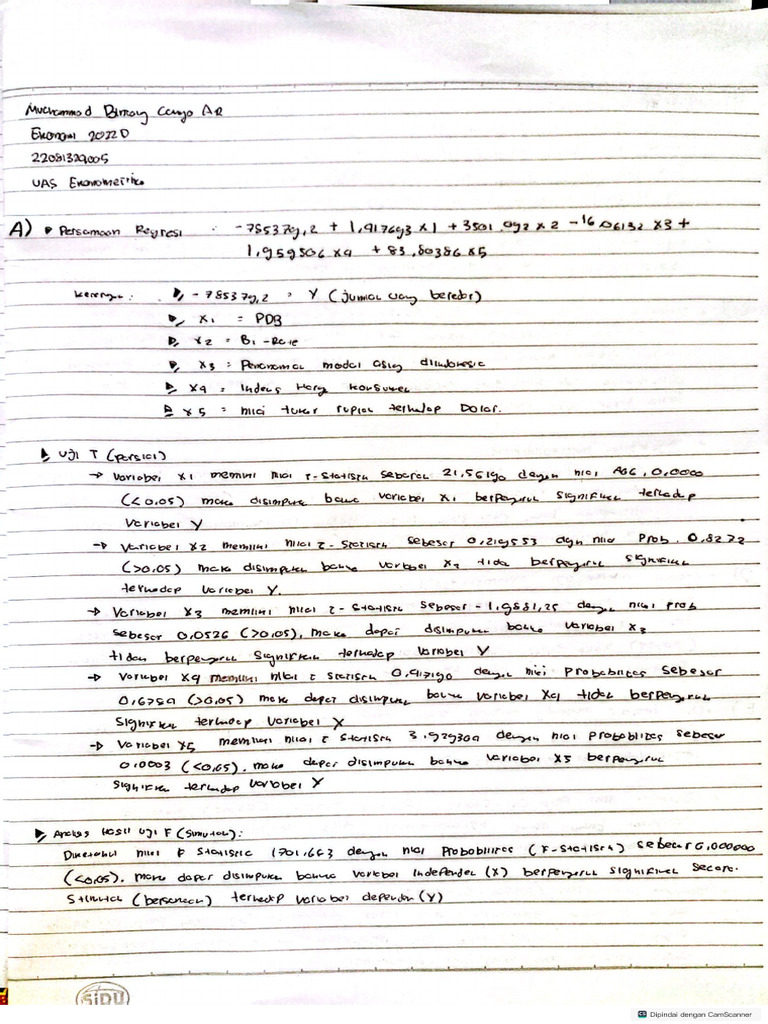 Muchammad Bintang Cahyo AR
Ekonomi 2022D
22081324005
UAS Ekonometrika
A) Persamaan Regresi : -785379,2 + 1,917693 x1 + 3501.092 x2 -16,06132 x3 +
1,959506 x4 + 83,80386 x5
Keterangan : -785379,2 = Y (jumlah uang beredar)
x1 = PDB
x2 = BI-Rate
x3 = Penanaman modal asing diIndonesia
x4 = Indeks Harg Konsumen
x5 = nilai tukar rupiah terhadap Dolar.
Uji T (parsial)
→ Variabel x1 memiliki nilai t-statistik sebesar 21,56190 dengan nilai 0,0000
(<0,05) maka disimpulkan bahwa variabel x1 berpengaruh signifikan terhadap
Variabel Y
→ Variabel x2 memiliki nilai t-statistik sebesar 0,219553 dgn nilai Prob. 0,8272
(>0,05) maka disimpulkan bahwa variabel x2 tidak berpengaruh signifikan
terhadap variabel Y.
→ Variabel x3 memiliki nilai t-statistik sebesar -1,988125 dengan nilai prob
sebesar 0,0526 (>0,05), maka dapat disimpulkan bahwa variabel x3
tidak berpengaruh signifikan terhadap variabel Y
→ Variabel x4 memiliki nilai t statistik dengan nilai probabilitas sebesar
0,6789 (>0,05) maka dapat disimpulkan bahwa variabel x4 tidak berpengaruh
signifikan terhadap variabel X
→ Variabel x5 memiliki nilai t statistik 3,929309 dengan nilai probabilitas sebesar
0.0003 (<0,05), maka dapat disimpulkan bahwa variabel x5 berpengaruh
signifikan terhadap variabel Y
Analisis Hasil Uji F (simultan):
Diketahui nilai F statistic 1701,663 dengan nilai probabilitas (F-statistik) sebesar 0,000000
(<0,05). maka dapat disimpulkan bahwa variabel independen (X) berpengaruh signifikan secara
Stimultan (bersamaan) terhadap variabel dependen (Y)
SiDU
Dipindai dengan CamScanner